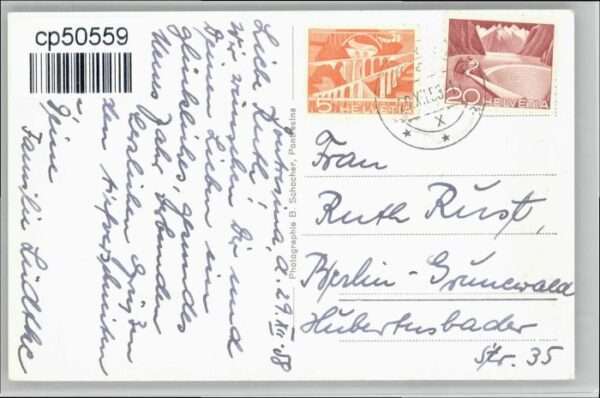 cp50559
Pontresina, d. 29. XII. 58
Liebe Ruth!
Wir wünschen Dir und
Deinen Lieben ein
glückliches, gesundes
Neues Jahr verbunden
herzlichen Grüssen
den tiefverschneiten
Familie Lüdtke
Photographie B. Schocher, Pontresina
5 HELVETIA
20 HELVETIA
Frau
Ruth Rust,
Berlin-Grunewald
Hubertusbader
Str. 35